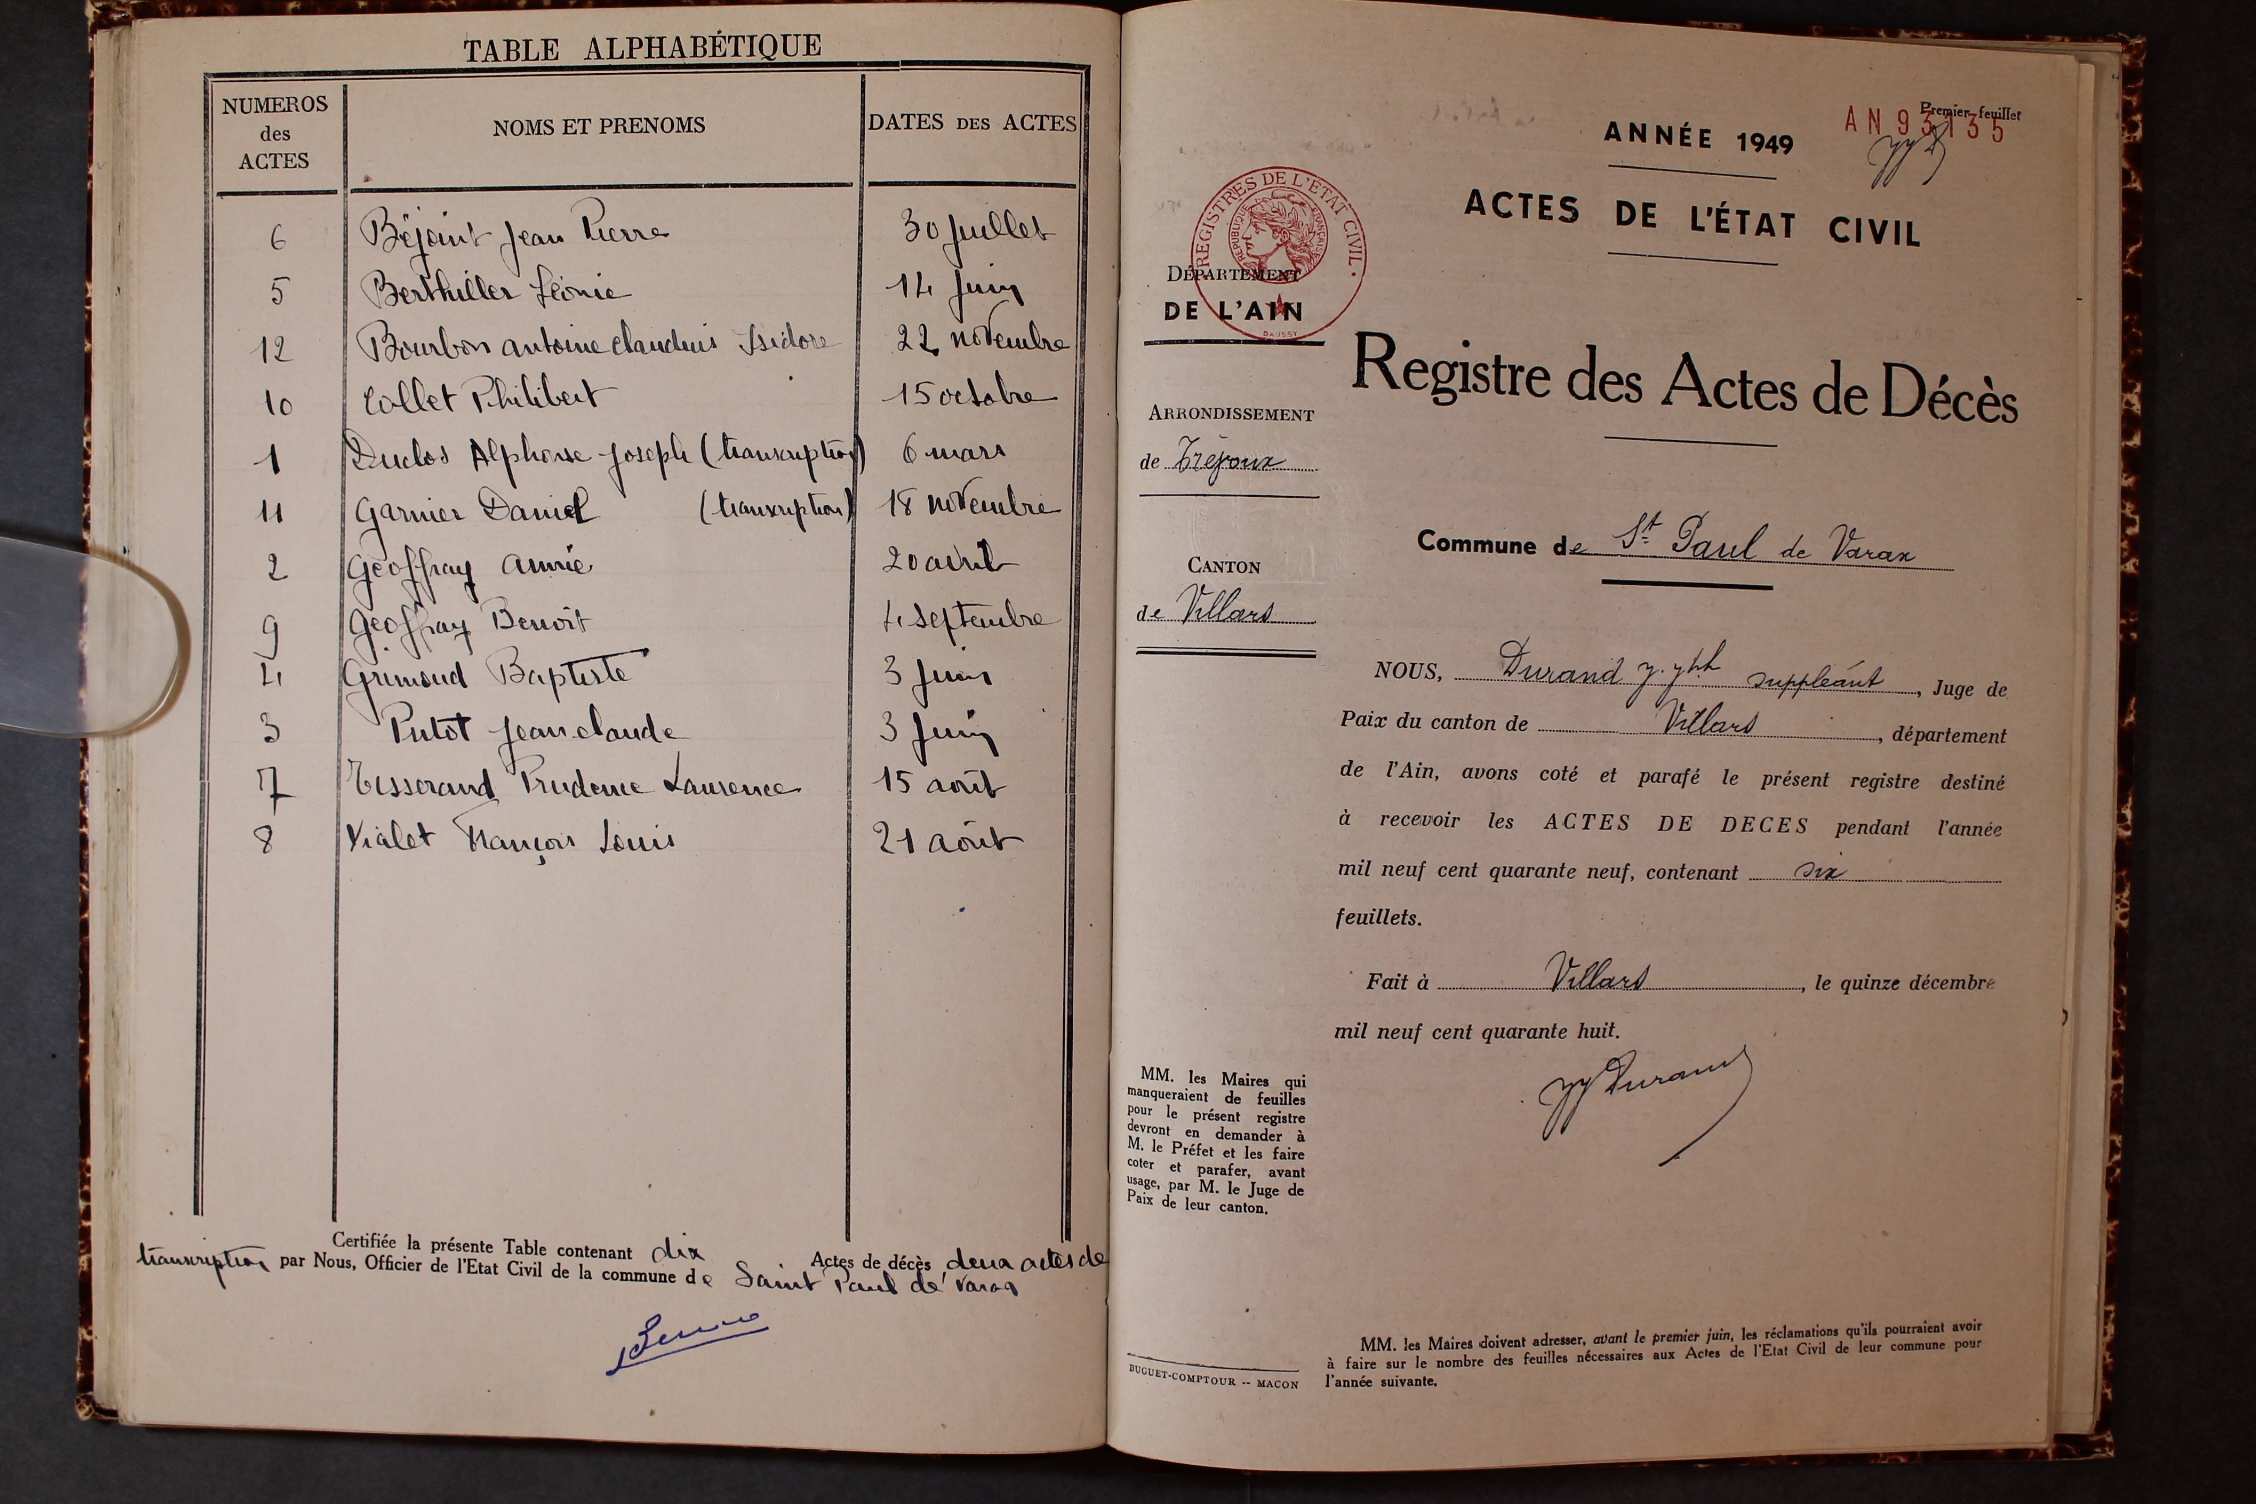 TABLE ALPHABÉTIQUE
NUMEROS
des
ACTES
NOMS ET PRENOMS
DATES DES ACTES
6 Béjoint Jean Pierre 30 Juillet
5 Berthiller Léonie 14 Juin
12 Bourbon antoine claudius Isidore 22 novembre
10 Collet Philibert 15 octobre
1 Duclos Alphonse Joseph (transcription) 6 mars
11 Garnier Daniel (transcription) 18 novembre
2 Geoffray 20 avril
9 Geoffray Benoît 4 septembre
4 Grimoud Baptiste 3 Juin
3 Putot Jean claude 3 Juin
7 Tisserand Prudence Laurence 15 août
8 Vialet François Louis 21 août
Certifiée la présente Table contenant dix Actes de décès, deux actes de
transcription par Nous, Officier de l'Etat Civil de la commune de Saint Paul de Varax
Premier feuillet
AN 93135
ANNÉE 1949
ACTES DE L'ÉTAT CIVIL
REGISTRES DE L'ETAT CIVIL
REPUBLIQUE FRANÇAISE
DAUSSY
DÉPARTEMENT
DE L'AIN
Registre des Actes de Décès
ARRONDISSEMENT
de Tréjoux
Commune de St Paul de Varax
CANTON
de Villars
NOUS, Durand suppléant, Juge de
Paix du canton de Villars, département
de l'Ain, avons coté et parafé le présent registre destiné
à recevoir les ACTES DE DECES pendant l'année
mil neuf cent quarante neuf, contenant six
feuillets.
Fait à Villars, le quinze décembre
mil neuf cent quarante huit.
JJ Durand
MM. les Maires qui
manqueraient de feuilles
pour le présent registre
devront en demander à
M. le Préfet et les faire
coter et parafer, avant
usage, par M. le Juge de
Paix de leur canton.
MM. les Maires doivent adresser, avant le premier juin, les réclamations qu'ils pourraient avoir
à faire sur le nombre des feuilles nécessaires aux Actes de l'Etat Civil de leur commune pour
l'année suivante.
BUGUET-COMPTOUR -- MACON